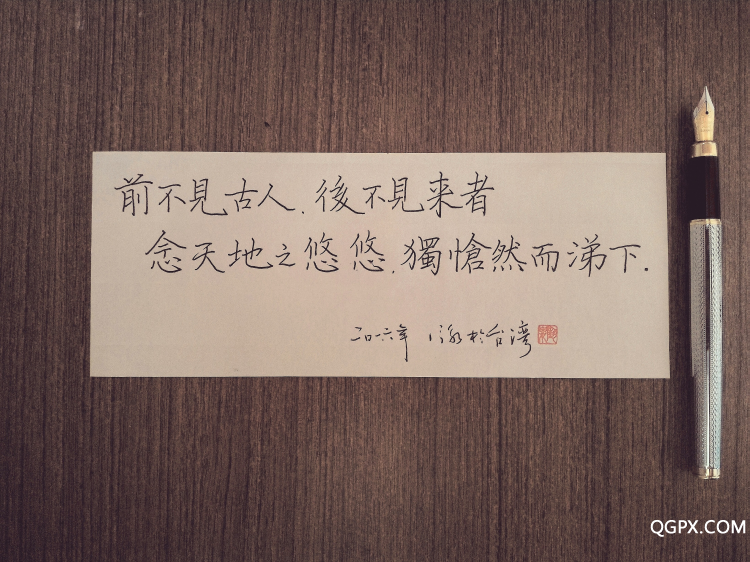 前不見古人.後不見来者
念天地之悠悠.獨愴然而涕下.
二〇一六年 於台湾
QGPX.COM